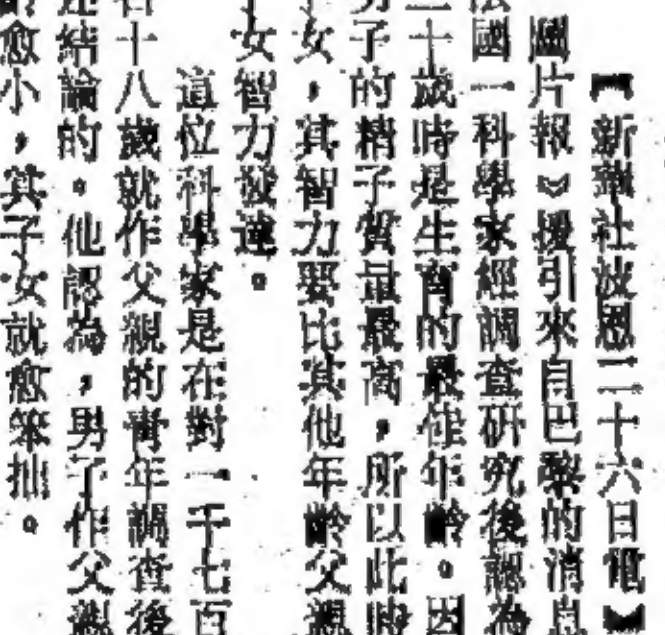 【新華社波恩二十六日電】
圖片報》援引來自巴黎的消息
國一科學家經調查研究後認為
二十歲時是生育的最佳年齡。因
男子的精子質量最高，所以此時
女，其智力要比其他年齡父親
女智力發達。
這位科學家是在對一千七百
名十八歲就作父親的青年調查後
述結論的。他認為，男子作父親
齡愈小，其子女就愈笨拙。